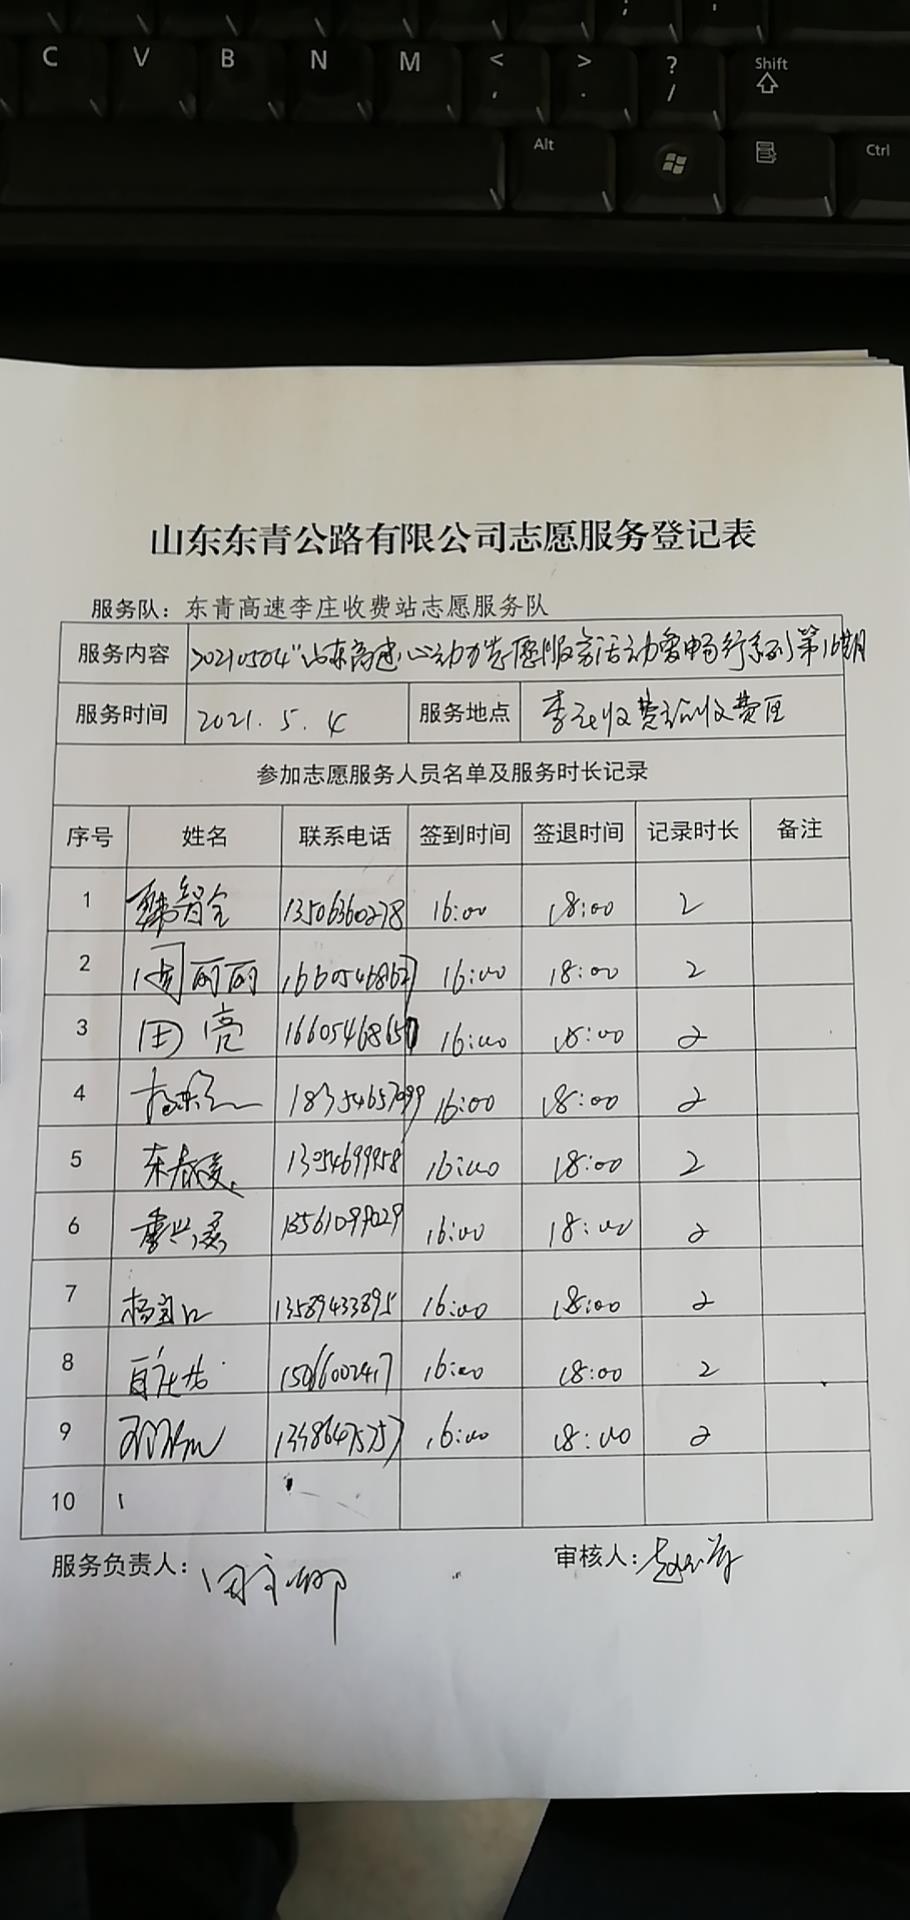 C V B N M < , > . ? / Shift
Alt Ctrl
山东东青公路有限公司志愿服务登记表
服务队：东青高速李庄收费站志愿服务队
服务内容 20210504"山东高速心动力志愿服务活动 畅行系列第16期
服务时间 2021.5.4 服务地点 李庄收费站收费区
参加志愿服务人员名单及服务时长记录
序号 姓名 联系电话 签到时间 签退时间 记录时长 备注
1 韩智全 13506360278 16:00 18:00 2
2 周丽丽 16:00 18:00 2
3 田亮 16:00 18:00 2
4 16:00 18:00 2
5 13054699958 16:00 18:00 2
6 13561099029 16:00 18:00 2
7 13589433895 16:00 18:00 2
8 15066002417 16:00 18:00 2
9 16:00 18:00 2
10
服务负责人： 审核人：